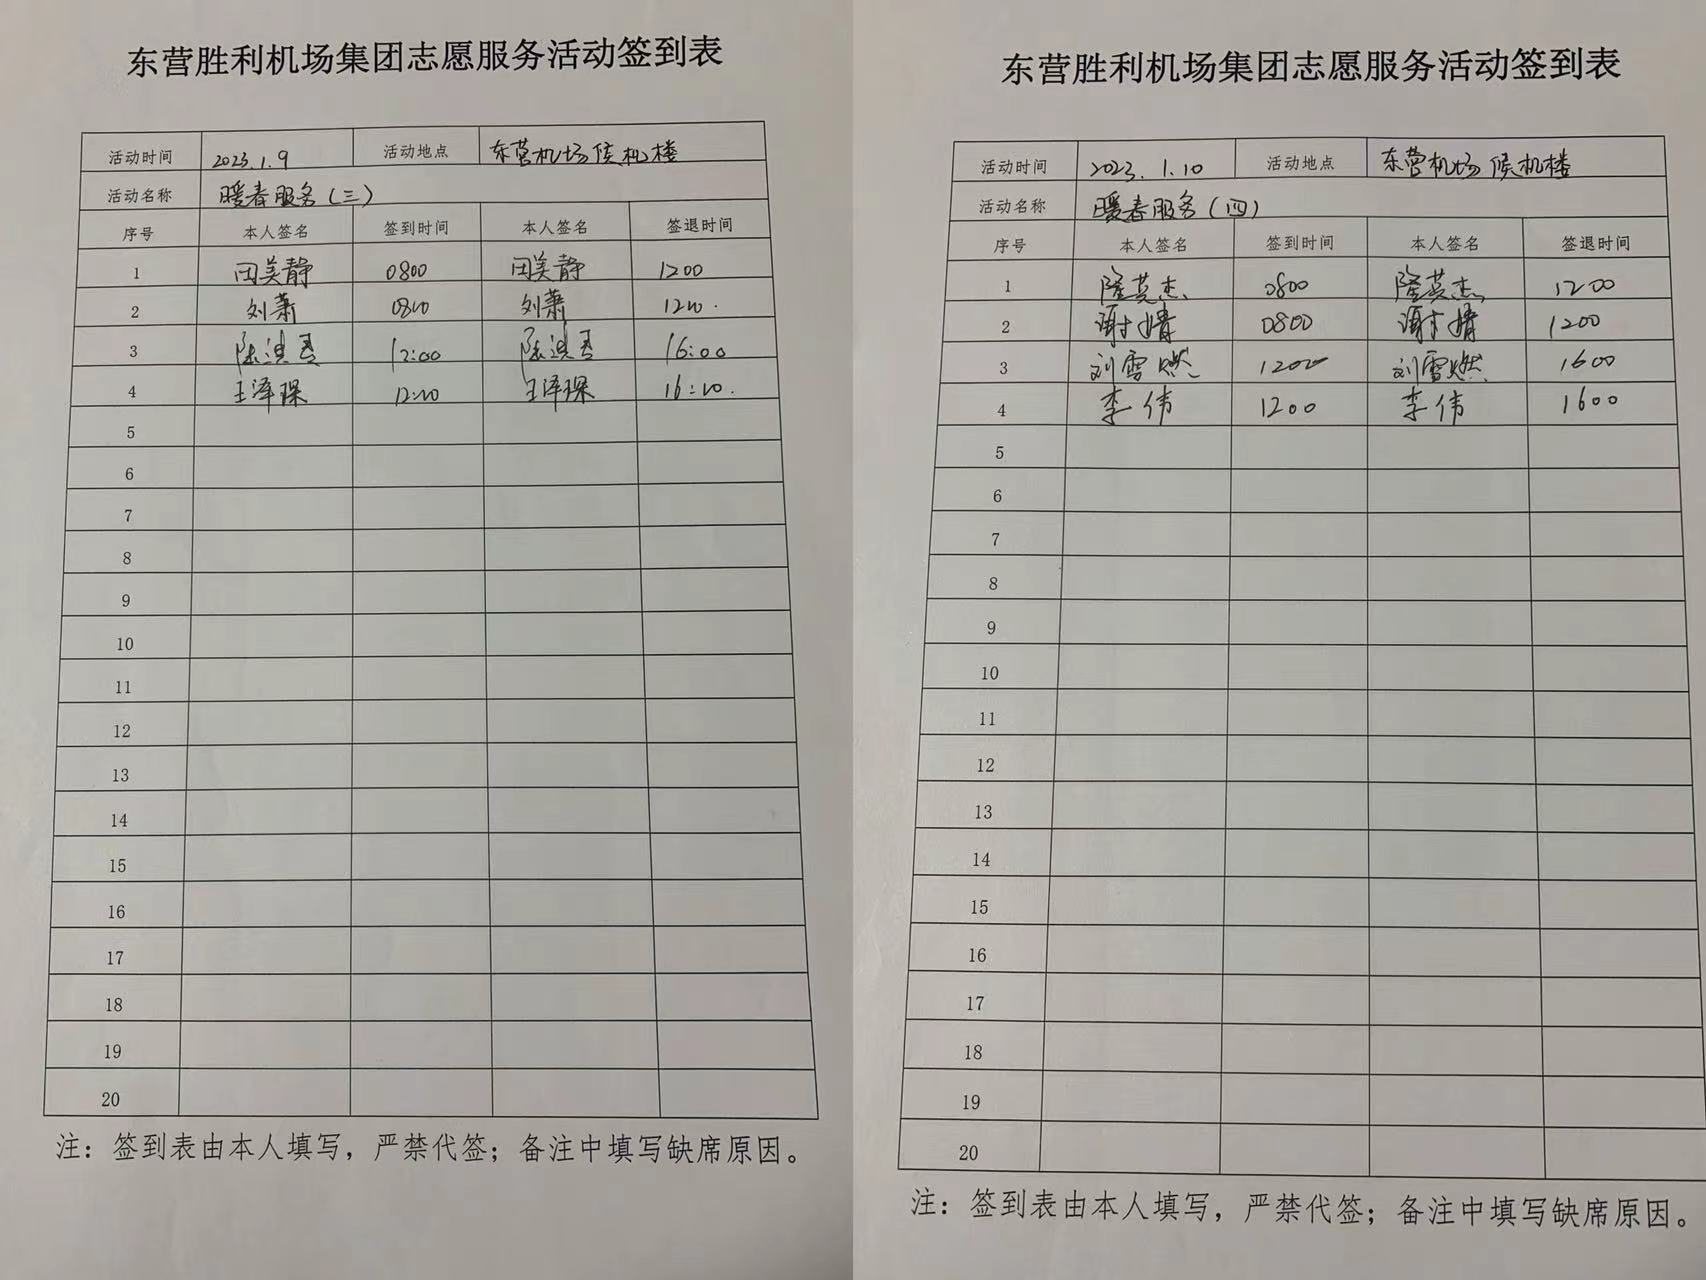 东营胜利机场集团志愿服务活动签到表
活动时间 2023.1.9 活动地点 东营机场候机楼
活动名称 暖春服务(三)
序号 本人签名 签到时间 本人签名 签退时间
1 田美静 0800 田美静 1200
2 刘萧 0800 刘萧 1200.
3 12:00 16:00
4 王泽琛 12:00 王泽琛 16:00.
5
6
7
8
9
10
11
12
13
14
15
16
17
18
19
20
注：签到表由本人填写，严禁代签；备注中填写缺席原因。
东营胜利机场集团志愿服务活动签到表
活动时间 2023.1.10 活动地点 东营机场候机楼
活动名称 暖春服务(四)
序号 本人签名 签到时间 本人签名 签退时间
1 隆英杰 0800 隆英杰 1200
2 谢婧 0800 谢婧 1200
3 刘雪燃 1200 刘雪燃 1600
4 李伟 1200 李伟 1600
5
6
7
8
9
10
11
12
13
14
15
16
17
18
19
20
注：签到表由本人填写，严禁代签；备注中填写缺席原因。